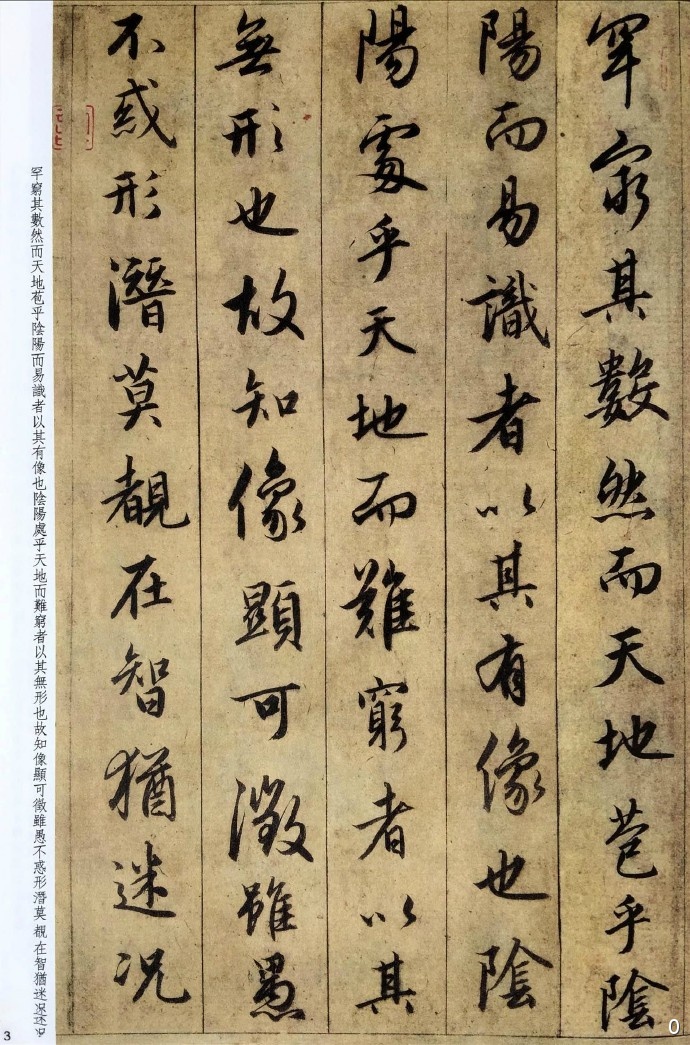 罕窮其數然而天地苞乎陰
陽而易識者以其有像也陰
陽處乎天地而難窮者以其
無形也故知像顯可徵雖愚
不惑形潛莫覩在智猶迷况
罕窮其數然而天地苞乎陰陽而易識者以其有像也陰陽處乎天地而難窮者以其無形也故知像顯可徵雖愚不惑形潛莫覩在智猶迷况
3
0